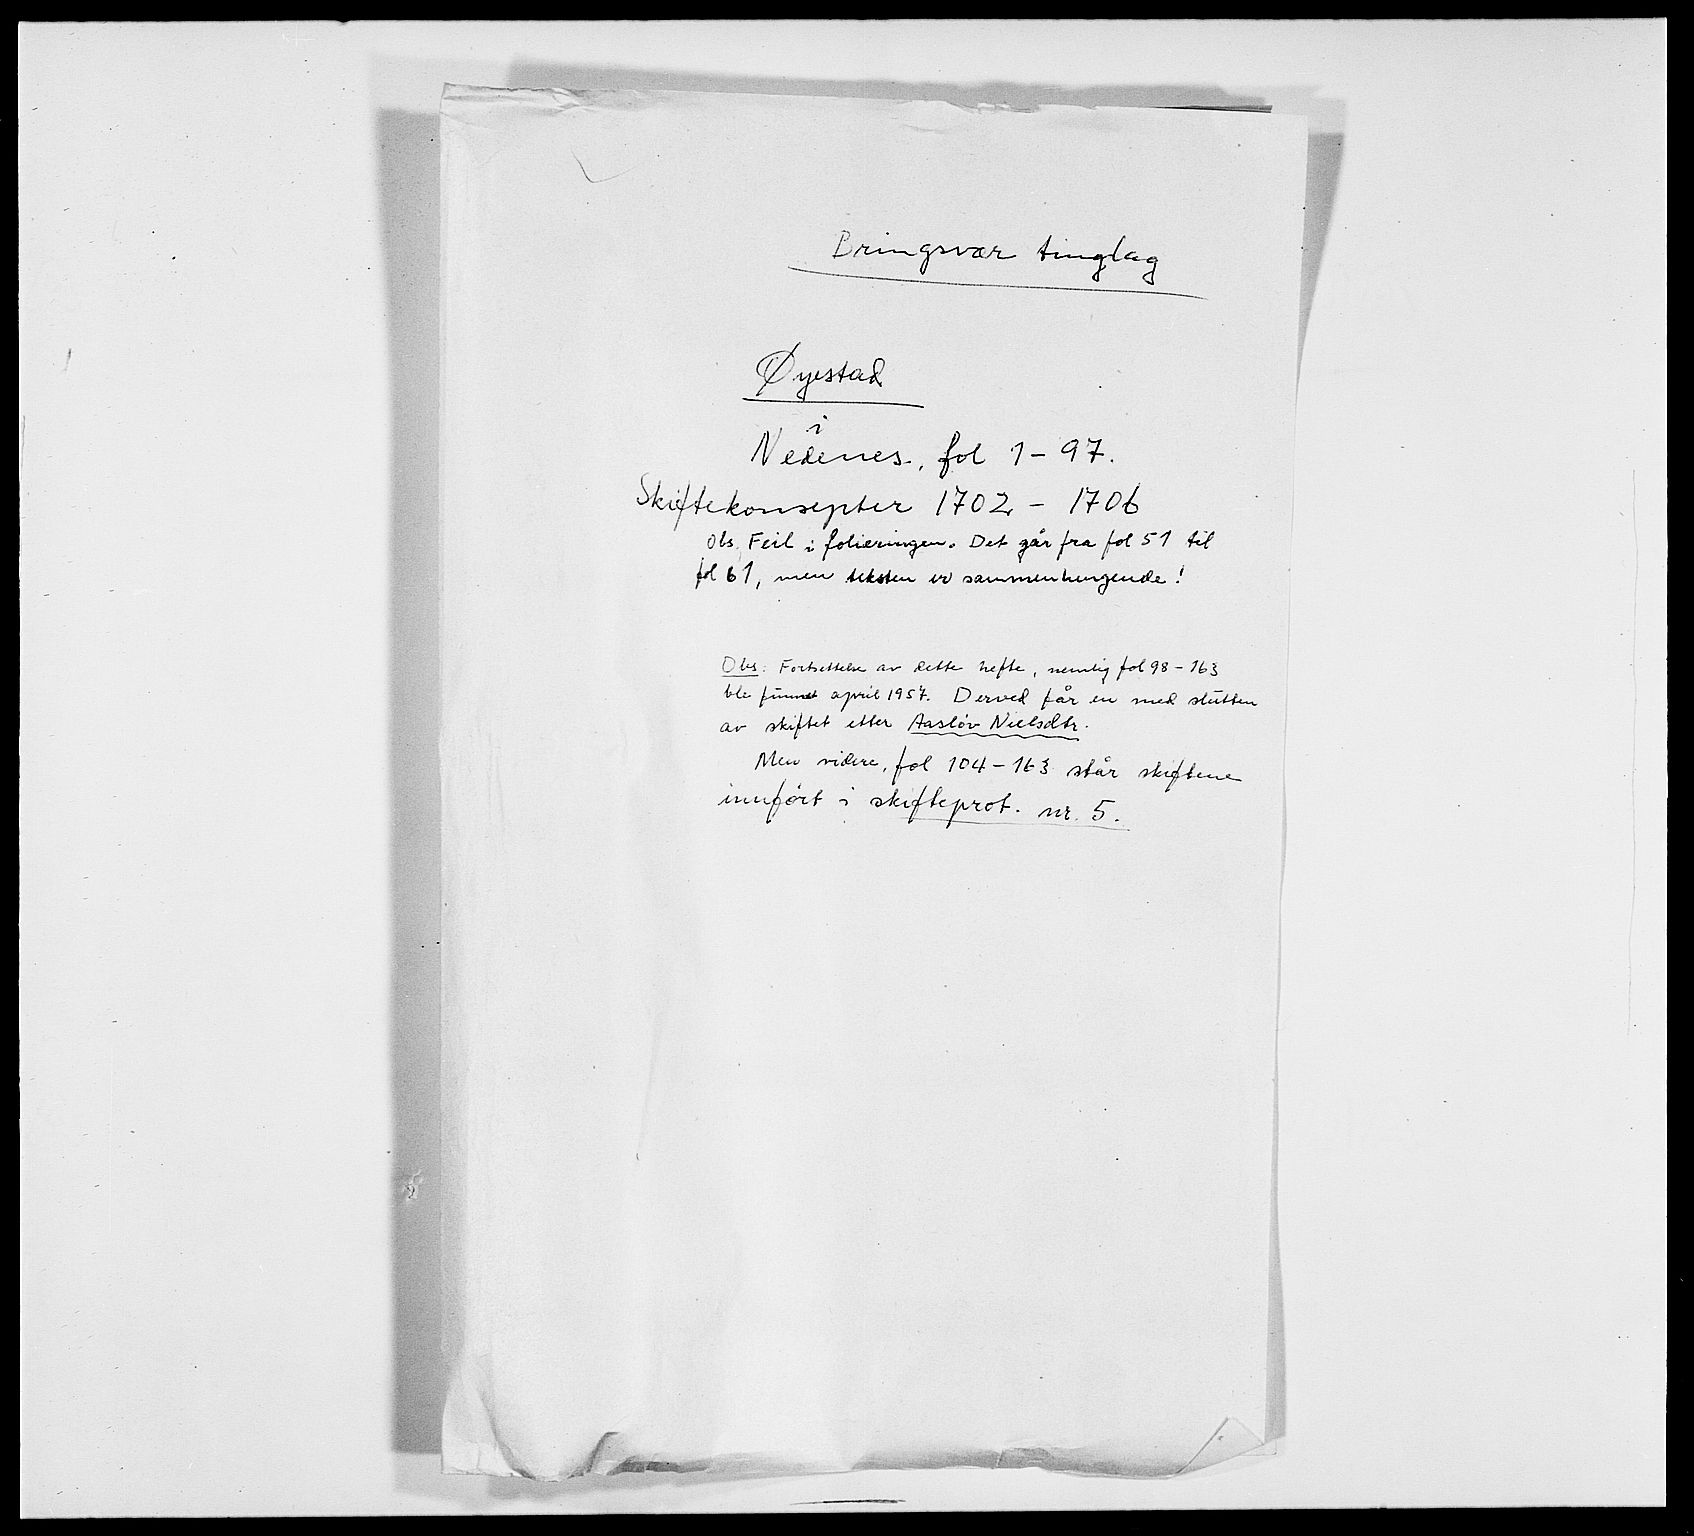 Bringsvær tinglag
Øyestad
i
Nedenes, fol 1 – 97.
Skiftekonsepter 1702 – 1706
Obs. Feil i folieringen. Det går fra fol 51 til
fol 61, men teksten er sammenhengende!
Obs: Fortsettelse av dette hefte, nemlig fol 98 – 163
ble funnet april 1957. Derved får en med slutten
av skiftet etter Aasløv Nielsdtr.
Men videre, fol 104 – 163 står skiftene
innført i skifteprot. nr. 5.